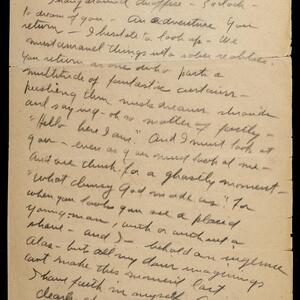 to dream of you - An adventure your
return - I hesitate to look up - We
must unravel things into sober realities
You return as one who parts a
multitude of fantastic curtains -
pushing them aside
and saying - oh so matter of factly -
"Hello here I am." And I must look at
you - even as you must look at me -
And we think for a ghastly moment -
"What clumsy God made us" for
when you look you see a placid
young man, with or without a
shave - and I - behold an
Alas - but all my dour imaginings
can't make this moment last
I have faith in myself